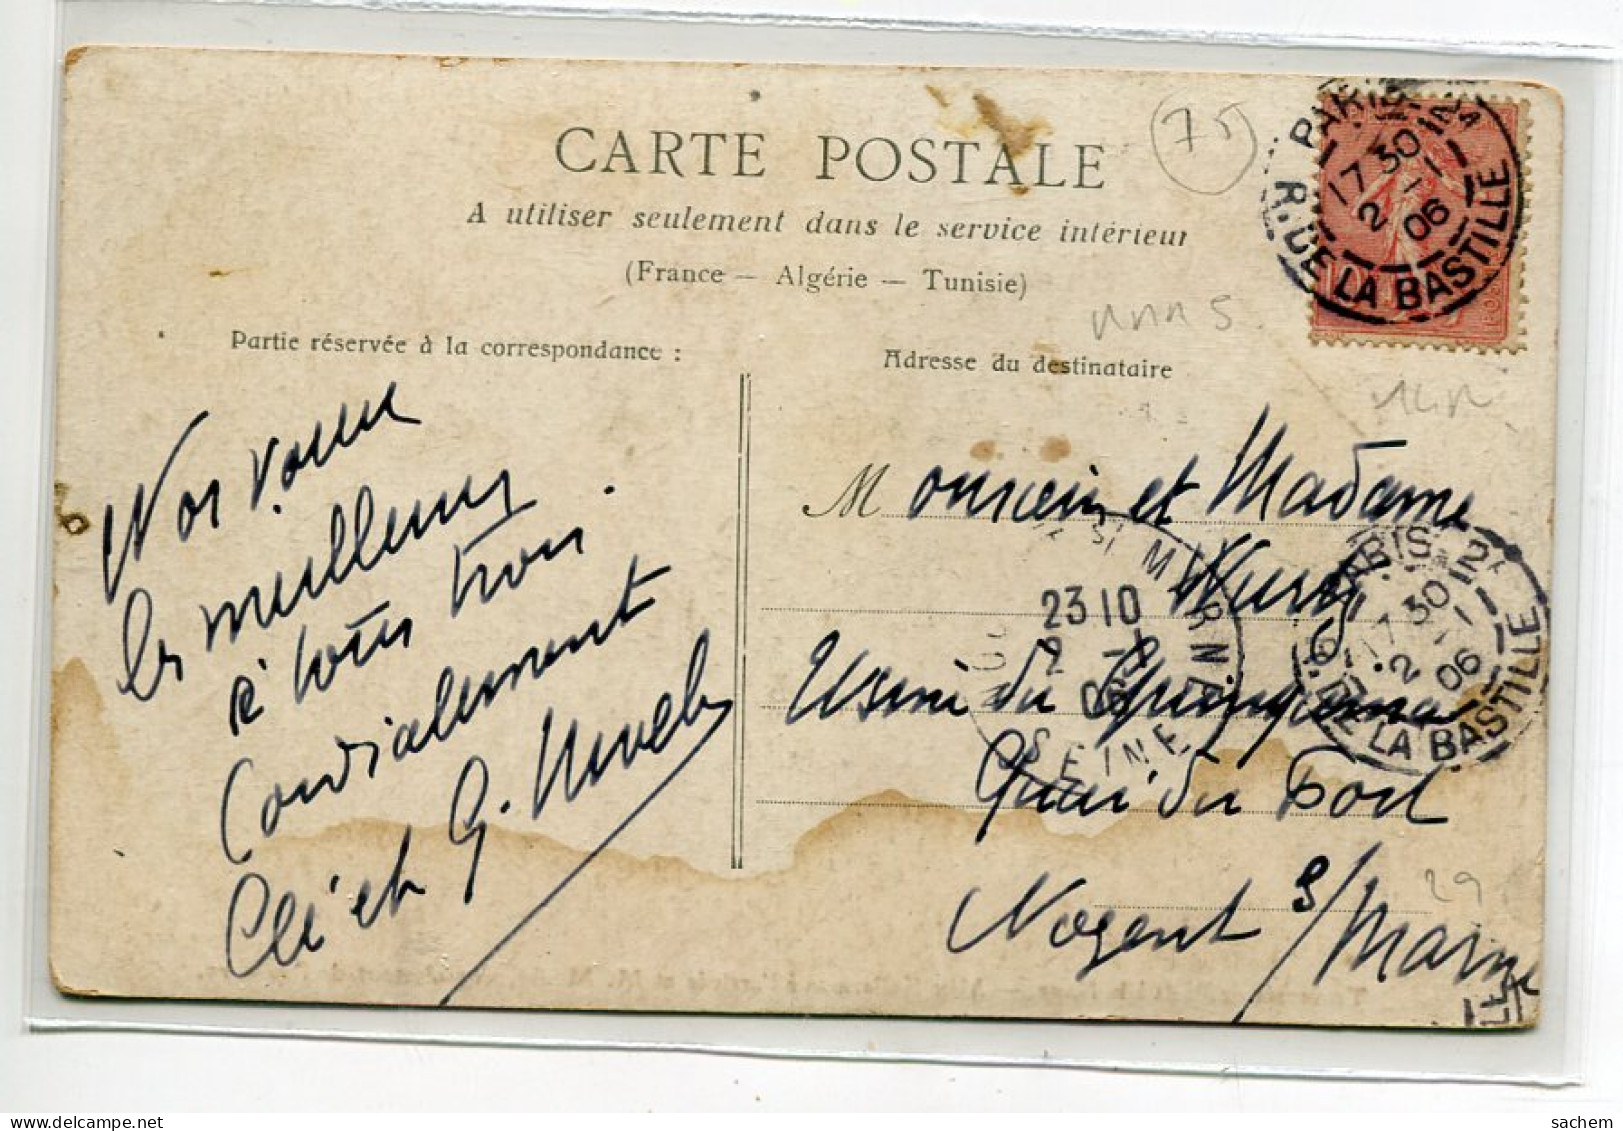 CARTE POSTALE
75
A utiliser seulement dans le service intérieur
(France — Algérie — Tunisie)
PARIS
17 30
2 - 1
06
R. DE LA BASTILLE
Partie réservée à la correspondance :
Adresse du destinataire
Nos vœux
les meilleurs
à tous trois.
Cordialement
Clé et G.
Monsieur et Madame
Usine du
Quai du Port
Nogent s/Marne
PARIS
17 30
2 - 1
06
R. DE LA BASTILLE
S/ MARNE
23 10
2 - 1
06
SEINE
29
sachem